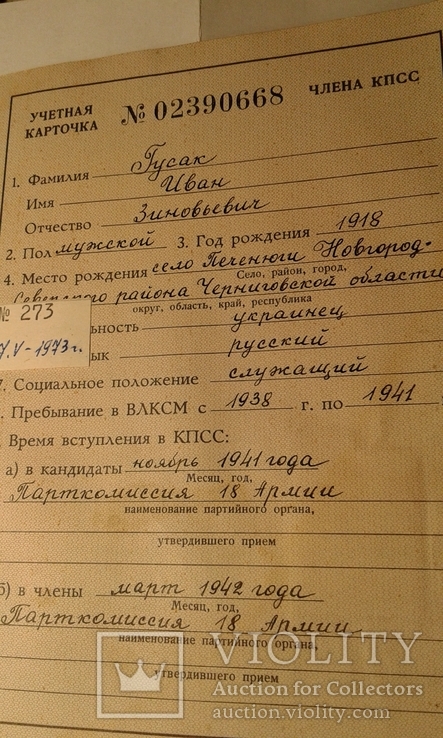 УЧЕТНАЯ КАРТОЧКА № 02390668 ЧЛЕНА КПСС
1. Фамилия Гусак
Имя Иван
Отчество Зиновьевич
2. Пол мужской 3. Год рождения 1918
4. Место рождения село Печенюги Новгород-
Село, район, город,
Северского района Черниговской области
округ, область, край, республика
№ 273
ьность украинец
7.V-1973г.
ык русский
7. Социальное положение служащий
. Пребывание в ВЛКСМ с 1938 г. по 1941
. Время вступления в КПСС:
а) в кандидаты ноябрь 1941 года
Месяц, год,
Парткомиссия 18 Армии
наименование партийного органа,
утвердившего прием
б) в члены март 1942 года
Месяц, год,
Парткомиссия 18 Армии
наименование партийного органа,
утвердившего прием
VIOLITY
Auction for Collectors
auction.violity.com